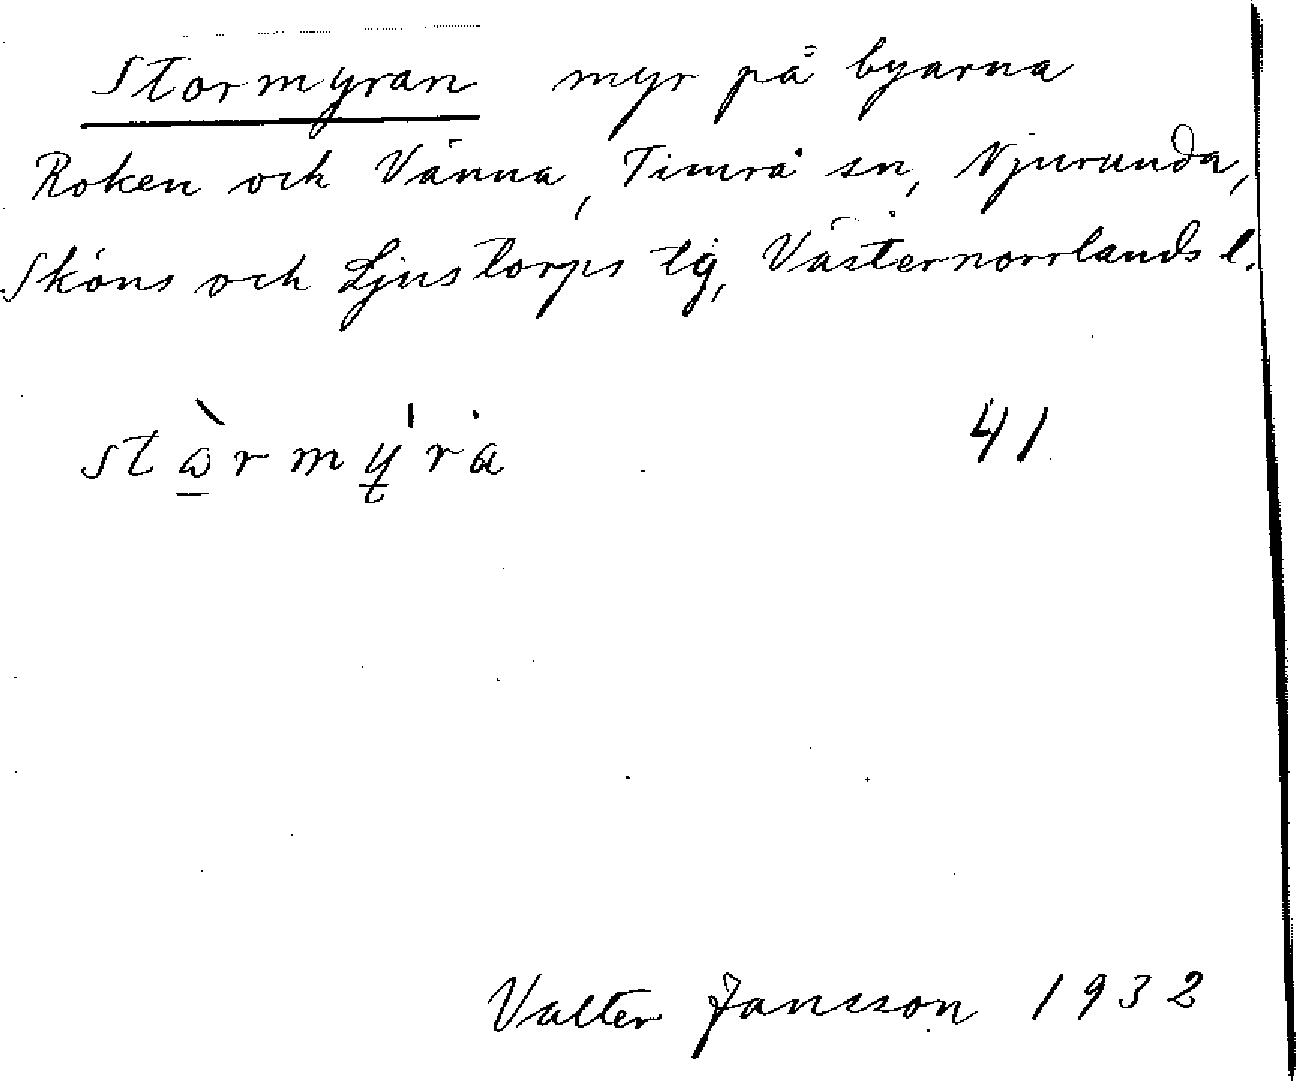 Stormyran myr på byarna
Roken och Vänna, Timrå sn, Njurunda,
Sköns och Ljustorps tg, Västernorrlands l.
41
Valter Jansson 1932